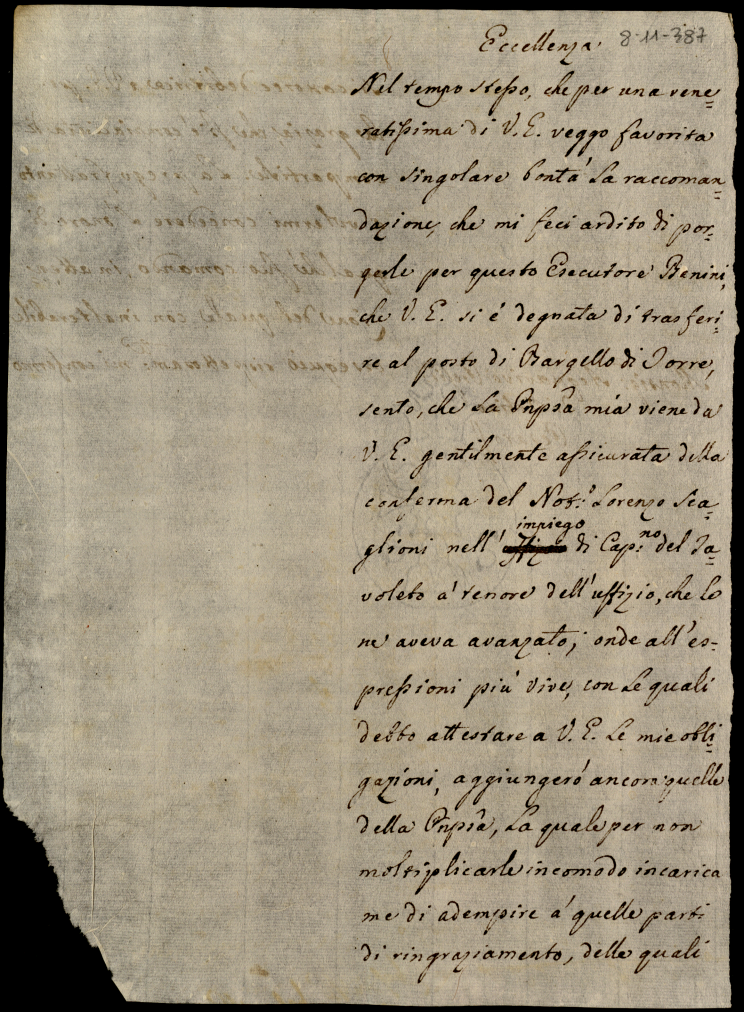 8-11-387
Eccellenza
Nel tempo stesso, che per una vene=
ratissima di V.E. veggo favorita
con singolare bontà la raccoman=
dazione, che mi feci ardito di por=
gerle per questo Esecutore Benini,
che V.E. si é degnata di trasferi=
re al posto di Bargello di Torre,
sento, che La Pnpssâ mia viene da
V.E. gentilmente assicurata della
conferma del Nots.º Lorenzo Sca=
glioni nell' impiego di Cap:no del Ta=
voleto a' tenore dell'uffizio, che le
ne aveva avanzato; onde all'es=
pressioni più vive, con le quali
debbo attestare a V.E. Le mie obli=
gazioni, aggiungerò ancora quelle
della Pnpssâ, La quale per non
moltiplicarle incomodo incarica
me di adempire a' quelle parti
di ringraziamento, delle quali